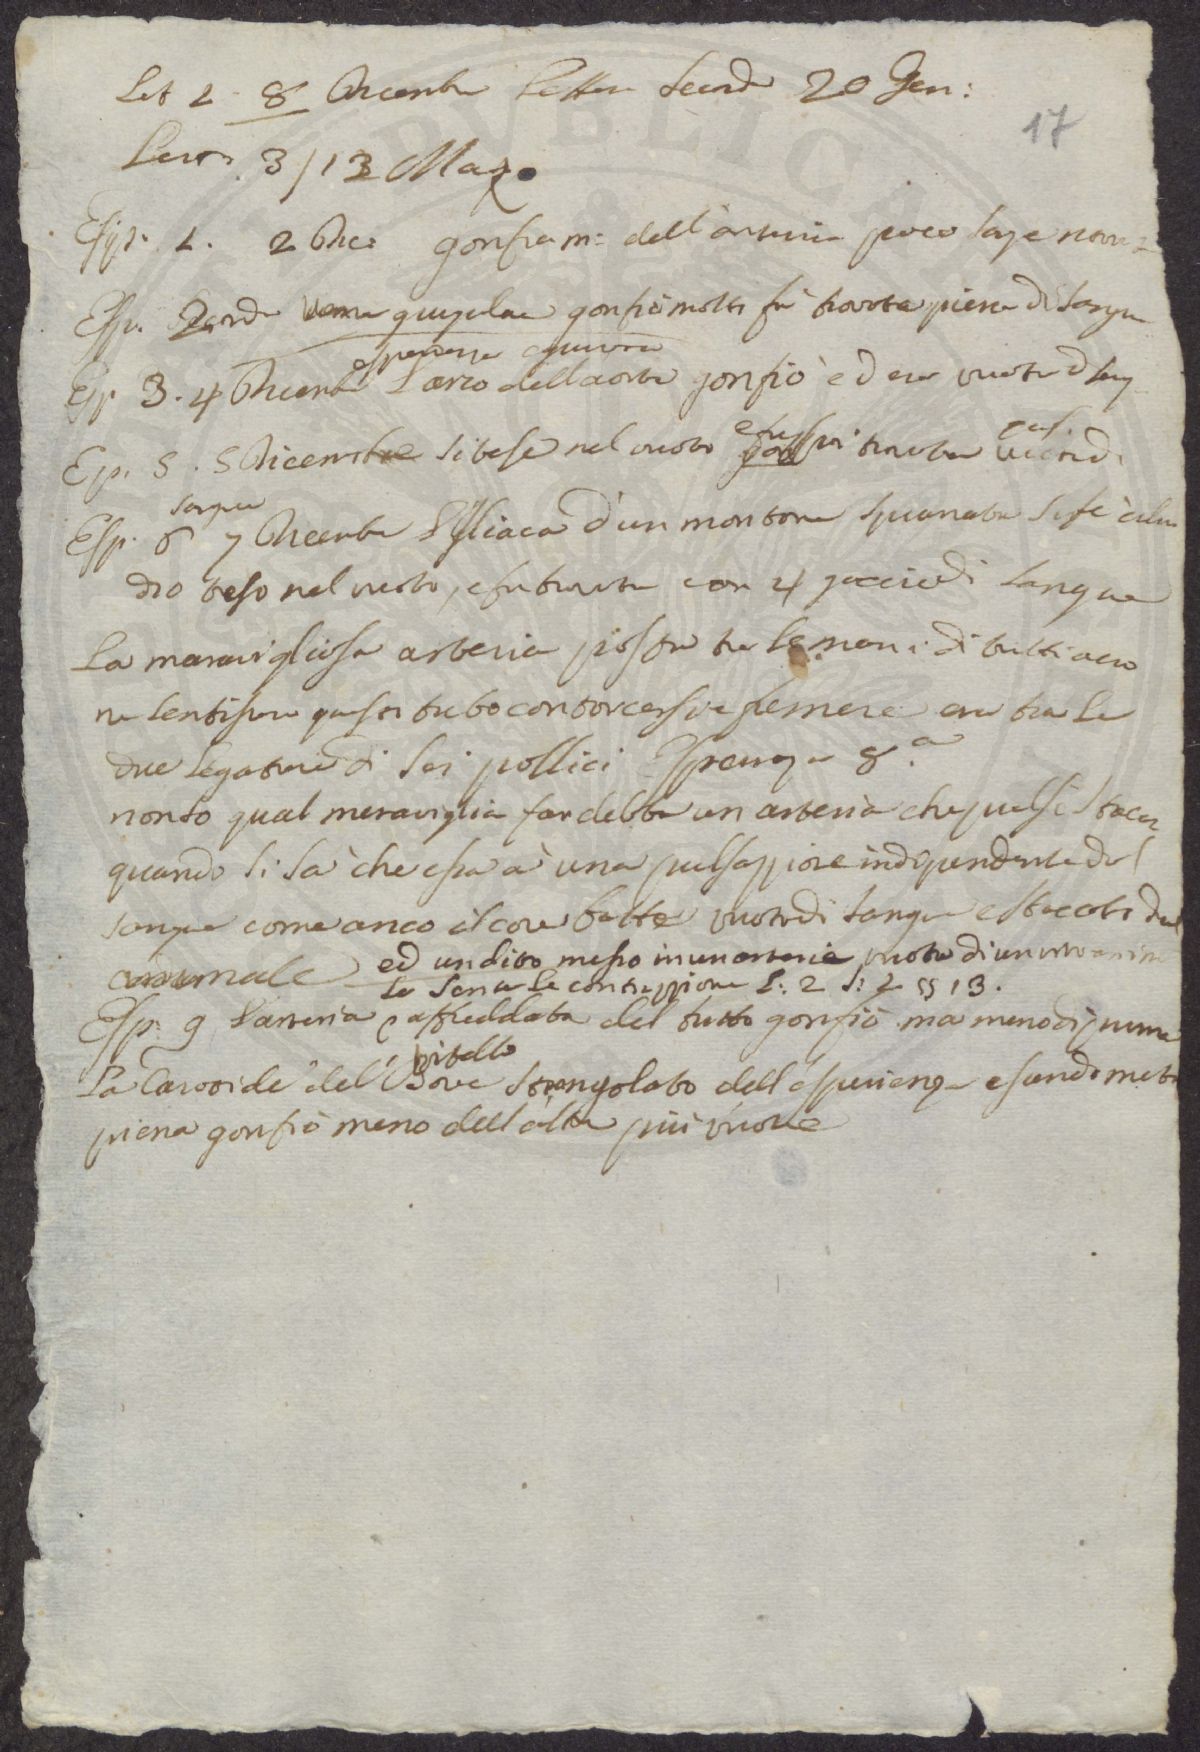 Let 1 8 Dicembre Lettera Seconda 20 Gen:
17
Lettera 3/13 Mazo
Esp. 1. 2 Dice gonfiam: dell'arteria poco sangue
Esp. 2anda Vena gugulae gonfiò molti fù trovata piena di sangue
esperienza equivoca
Esp 3. 4 Dicembre L'arco dell'aorta gonfiò ed era vuota d sang
Esp. 5. 5 Dicembre si tese nel vuoto e fu poi trovata quasi vuota di
sangue
Esp. 6 7 Dicembre L'Iliaca d'un montone suenato si fè cilin
dro teso nel vuoto, e fu trovata con 4 goccie di sangue
La maravigliosa arteria posta tra le mani di tutti
ne sentirono questo tubo contorcersi e fremere era tra le
due legature di sei pollici Esprenza 8.a
non so qual meraviglia far debba un arteria che pulsi staccata
quando si sa che essa à una pulsazzione indipendente dal
sangue come anco il core batte vuoto di sangue e staccato dal
animale ed un dito messo in un arteria vuota di un vivo animale
la sente la contrazzione L: 2 S: 2 §§ 13.
Esp: 9 L'arteria raffreddata del tutto gonfiò ma meno di prima
vitello
La Carotide del Bove strangolato dell'esperienza essendo meta
piena gonfiò meno dell'altra più vuota